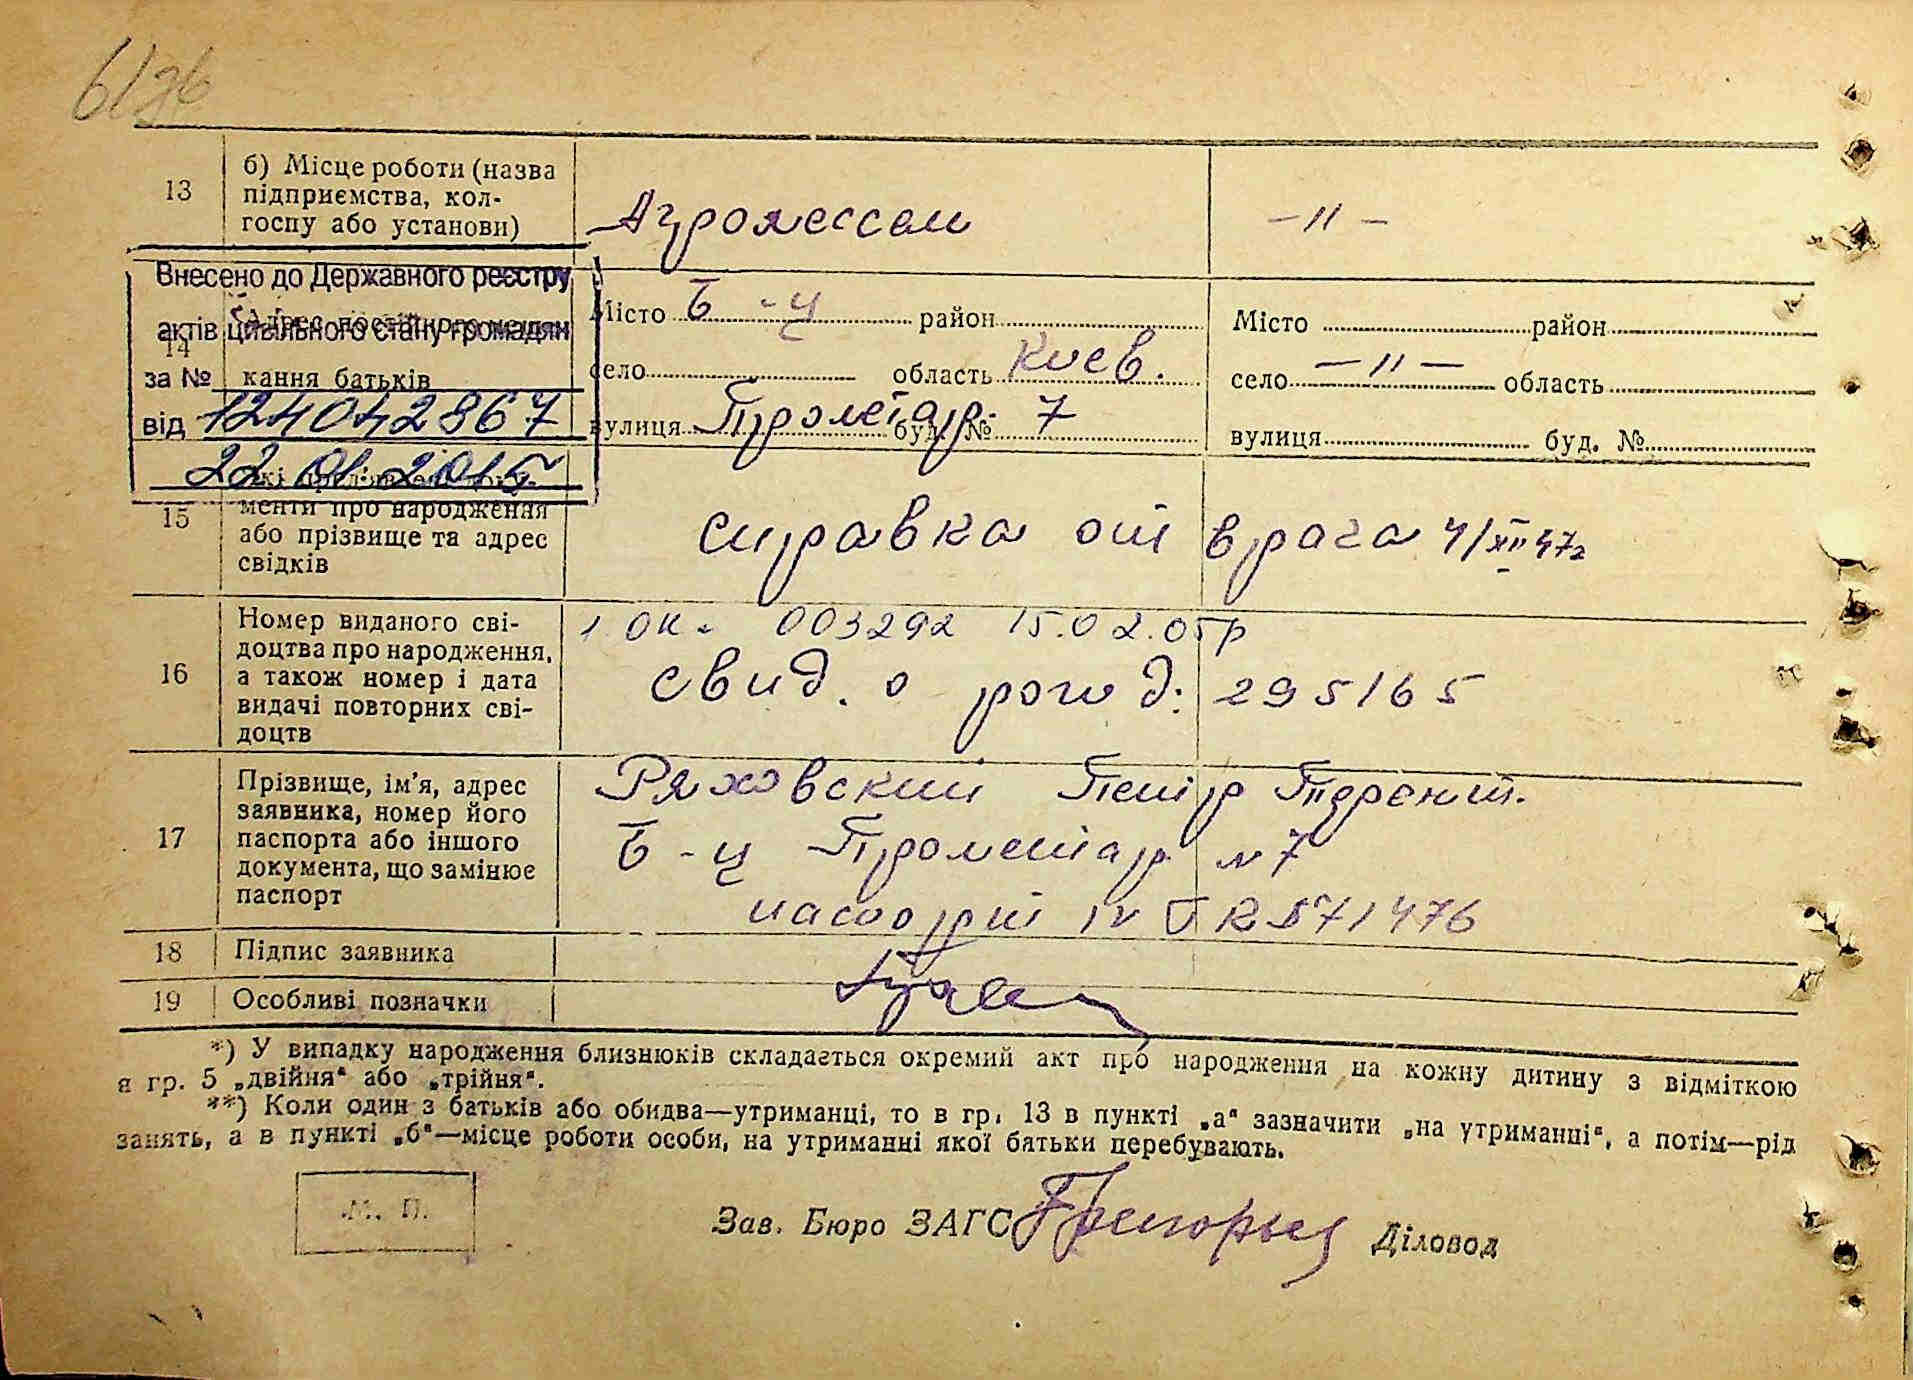 13
б) Місце роботи (назва
підприємства, кол-
госпу або установи)
Агролессем
—〃—
Внесено до Державного реєстру
актів цивільного стану громадян
за №
від 1240142867
22.01.2015
14
кання батьків
Місто Б-ц район
село область Киев.
вулиця Пролетар. буд. № 7
Місто район
село —〃— область
вулиця буд. №
15
менти про народження
або прізвище та адрес
свідків
справка от врача 4/XII 47г
16
Номер виданого сві-
доцтва про народження,
а також номер і дата
видачі повторних сві-
доцтв
003292 15.02.05р
свид. о рожд: 295165
17
Прізвище, ім'я, адрес
заявника, номер його
паспорта або іншого
документа, що замінює
паспорт
Ряховский Петр
Б-ц Пролетар №7
паспорт 571476
18 Підпис заявника
19 Особливі позначки
*) У випадку народження близнюків складається окремий акт про народження на кожну дитину з відміткою
в гр. 5 „двійня“ або „трійня“.
**) Коли один з батьків або обидва—утриманці, то в гр. 13 в пункті „а“ зазначити „на утриманні“, а потім—рід
занять, а в пункті „б“—місце роботи особи, на утриманні якої батьки перебувають.
М. П.
Зав. Бюро ЗАГС
Діловод